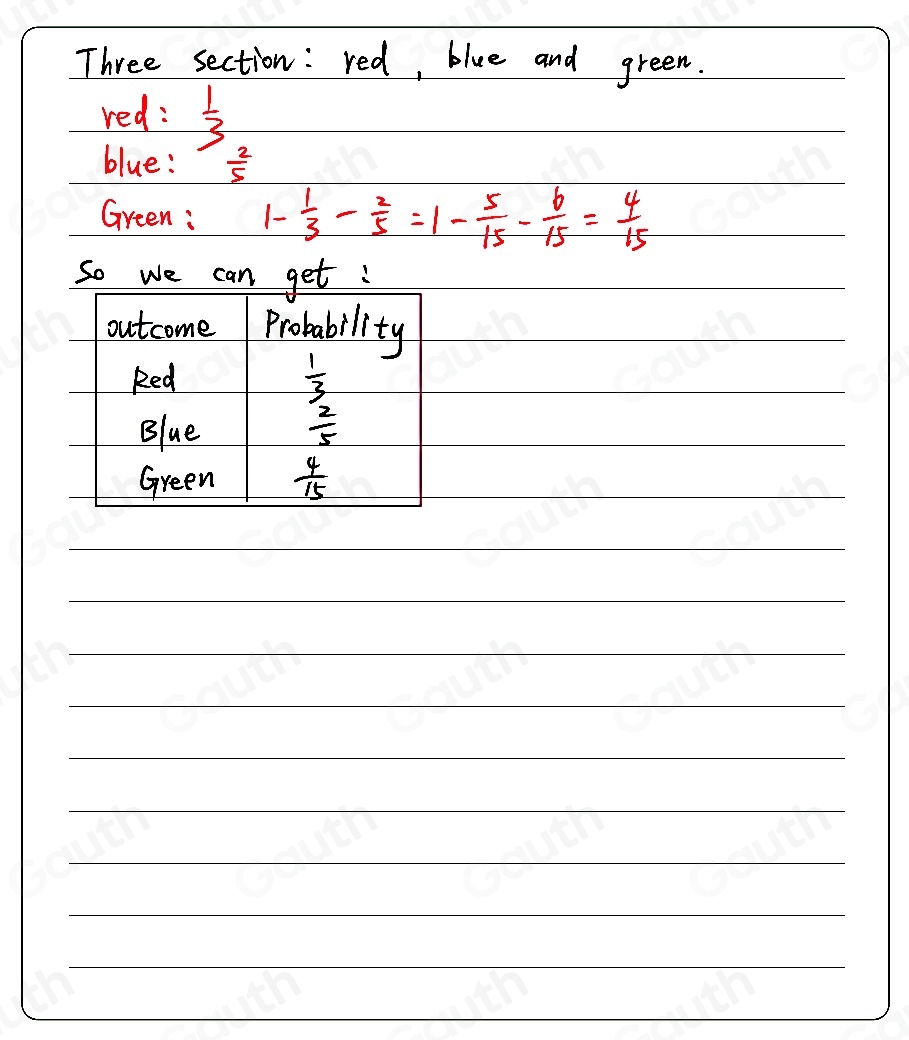 Three section: red, blue and green.
red: 1/3
blue: 2/5
Green: 1 - 1/3 - 2/5 = 1 - 5/15 - 6/15 = 4/15
So we can get:
outcome Probability
Red 1/3
Blue 2/5
Green 4/15
Gauth